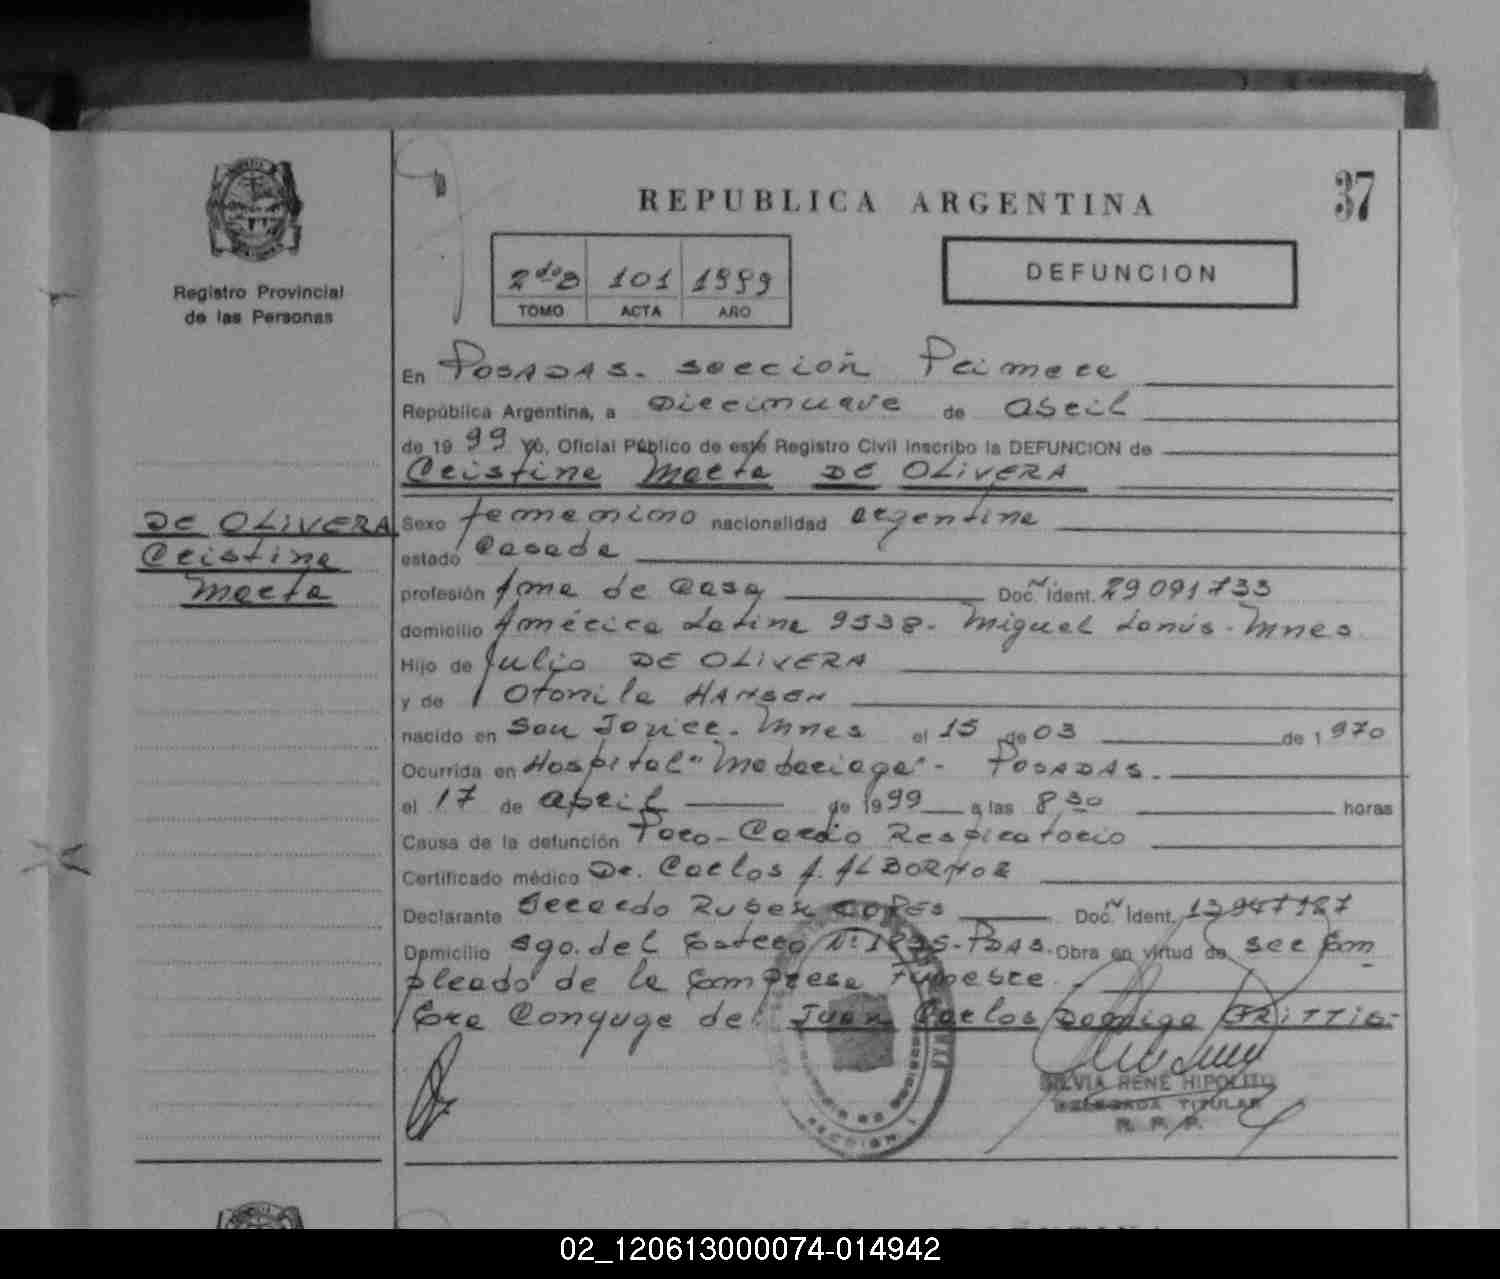 37
REPUBLICA ARGENTINA
Registro Provincial
de las Personas
2do B 101 1999
TOMO ACTA AÑO
DEFUNCION
En POSADAS. sección Primera
República Argentina, a Diecinueve de abril
de 1999 Yo, Oficial Público de este Registro Civil inscribo la DEFUNCION de
Cristina Marta DE OLIVERA
DE OLIVERA
Cristina
Marta
Sexo femenino nacionalidad argentina
estado Casada
profesión Ama de Casa Doc. Ident. 29091733
domicilio América Latina 9538. Miguel Lanús - Mnes
Hijo de Julio DE OLIVERA
y de Otonila HANSEN
nacido en San Javier. Mnes el 15 de 03 de 1970
Ocurrida en Hospital "Madariaga" - POSADAS.
el 17 de abril de 1999 a las 8 30 horas
Causa de la defunción Paro-Cardio Respiratorio
Certificado médico Dr. Carlos A. ALBORNOZ
Declarante Gerardo Ruben Doc. Ident.
Domicilio Sgo. del Estero Nº - Pdas. Obra en virtud de ser Em
pleado de la Empresa Funebre.
Era Conyuge de: Juan Carlos
SILVIA RENE HIPOLITO
DELEGADA TITULAR
R. P. P.
SECCION 1
02_120613000074-014942